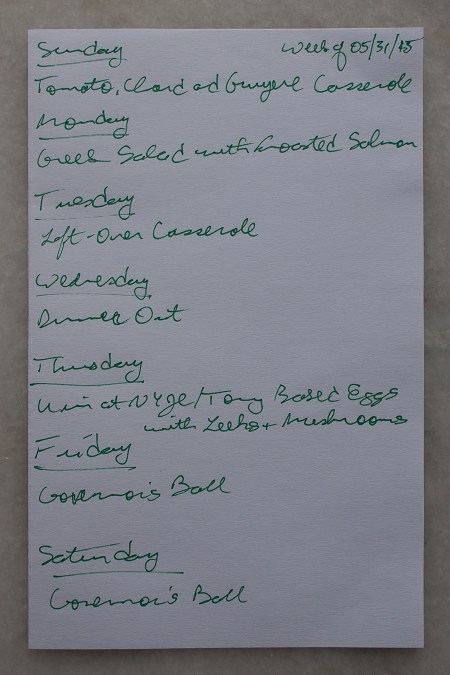 Sunday Week of 05/31/15
Tomato, Chard and Gruyere Casserole
Monday
Greek Salad with Roasted Salmon
Tuesday
Left-Over Casserole
Wednesday
Dinner Out
Thursday
at NYJL/Tony Baked Eggs
with Leeks + Mushrooms
Friday
Governor's Ball
Saturday
Governor's Ball